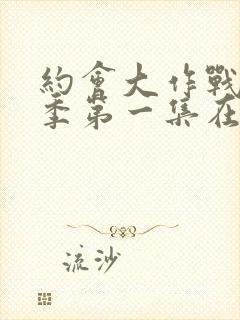 約會大作戰
季第一集在
流沙